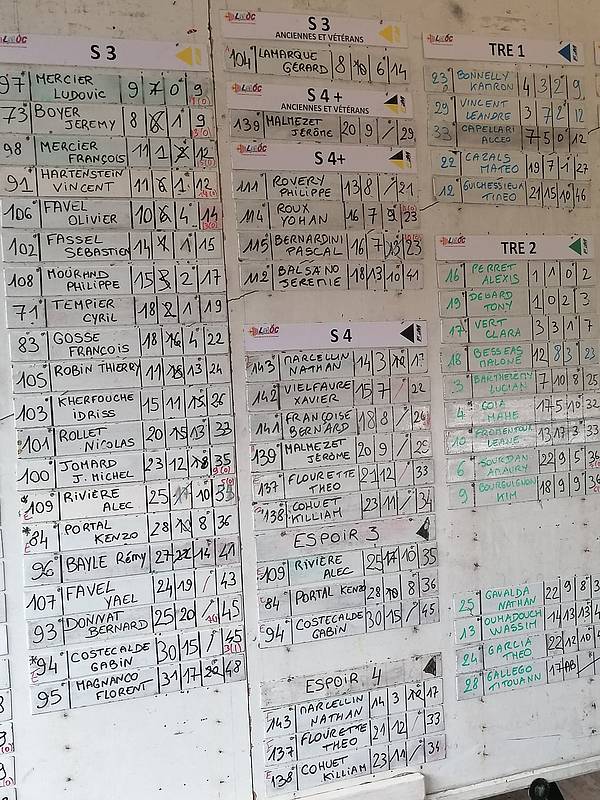 S 3
97 MERCIER Ludovic 9 7 0 9
73 BOYER JEREMY 8 8 1 9
98 MERCIER FRANÇOIS 11 1 12
91 HARTENSTEIN VINCENT 11 6 1 12
106 FAVEL OLIVIER 10 6 4 14
102 FASSEL SEBASTIEN 14 1 15
108 MOURAND PHILIPPE 15 2 17
71 TEMPIER CYRIL 18 1 19
83 GOSSE FRANCOIS 18 4 22
105 ROBIN THIERRY 11 13 24
103 KHERFOUCHE IDRISS 15 11 26
101 ROLLET NICOLAS 20 13 33
100 JOMARD J. MICHEL 23 12 35
*109 RIVIÈRE ALEC 25 10
*84 PORTAL KENZO 28 8 36
96 BAYLE Rémy 27 14 41
107 FAVEL YAEL 24 19 / 43
93 DONNAT BERNARD 25 20 / 45
*94 COSTECALDE GABIN 30 15 / 45
95 MAGNANCO FLORENT 31 17 48
S 3
ANCIENNES ET VÉTÉRANS
104 LAMARQUE GÉRARD 8 6 14
S 4 +
ANCIENNES ET VÉTÉRANS
139 MALMEZET JÉRÔME 20 9 / 29
S 4+
111 ROVERY PHILIPPE 13 8 / 21
114 ROUX YOHAN 16 7 9 23
115 BERNARDINI PASCAL 16 7 23
112 BALSANO JEREMIE 18 13 10 41
S 4
143 MARCELLIN NATHAN 14 3 17
142 VIELFAURE XAVIER 15 7 / 22
141 FRANÇOISE BERNARD 18 8 / 26
139 MALMEZET JEROME 20 9 / 29
137 FLOURETTE THEO 21 12 / 33
138 COHUET KILLIAM 23 11 / 34
ESPOIR 3
109 RIVIÈRE ALEC 25 10 35
84 PORTAL KENZO 28 8 36
94 COSTECALDE GABIN 30 15 / 45
ESPOIR 4
143 MARCELLIN NATHAN 14 3 17
137 FLOURETTE THEO 21 12 / 33
138 COHUET KILLIAM 23 11 / 34
TRE 1
23 BONNELLY KAMRON 4 3 2 9
29 VINCENT LEANDRE 3 7 2 12
33 CAPELLARI ALCEO 7 5 0 12
22 CAZALS MATEO 19 7 1 27
12 GUICHESSIEUX TIMEO 21 15 10 46
TRE 2
16 PERRET ALEXIS 1 1 0 2
19 DEBARD TONY 1 0 2 3
17 VERT CLARA 3 3 1 7
18 BESSEAS MALONE 12 8 3 23
3 BARTHELEMY LUCIAN 7 10 8 25
4 GOIA MAHE 17 5 10 32
10 FROMENTOUX LEANE 13 17 3 33
6 SOURDAN AMAURY 22 9 5 36
9 BOURGUIGNON KIM 18 9 9 36
25 GAVALDA NATHAN 22 9 8
13 OUHADOUCH WASSIM 14 13 13
24 GARCIA THEO 22 12 10
28 GALLEGO TITOUANN 17 AB /